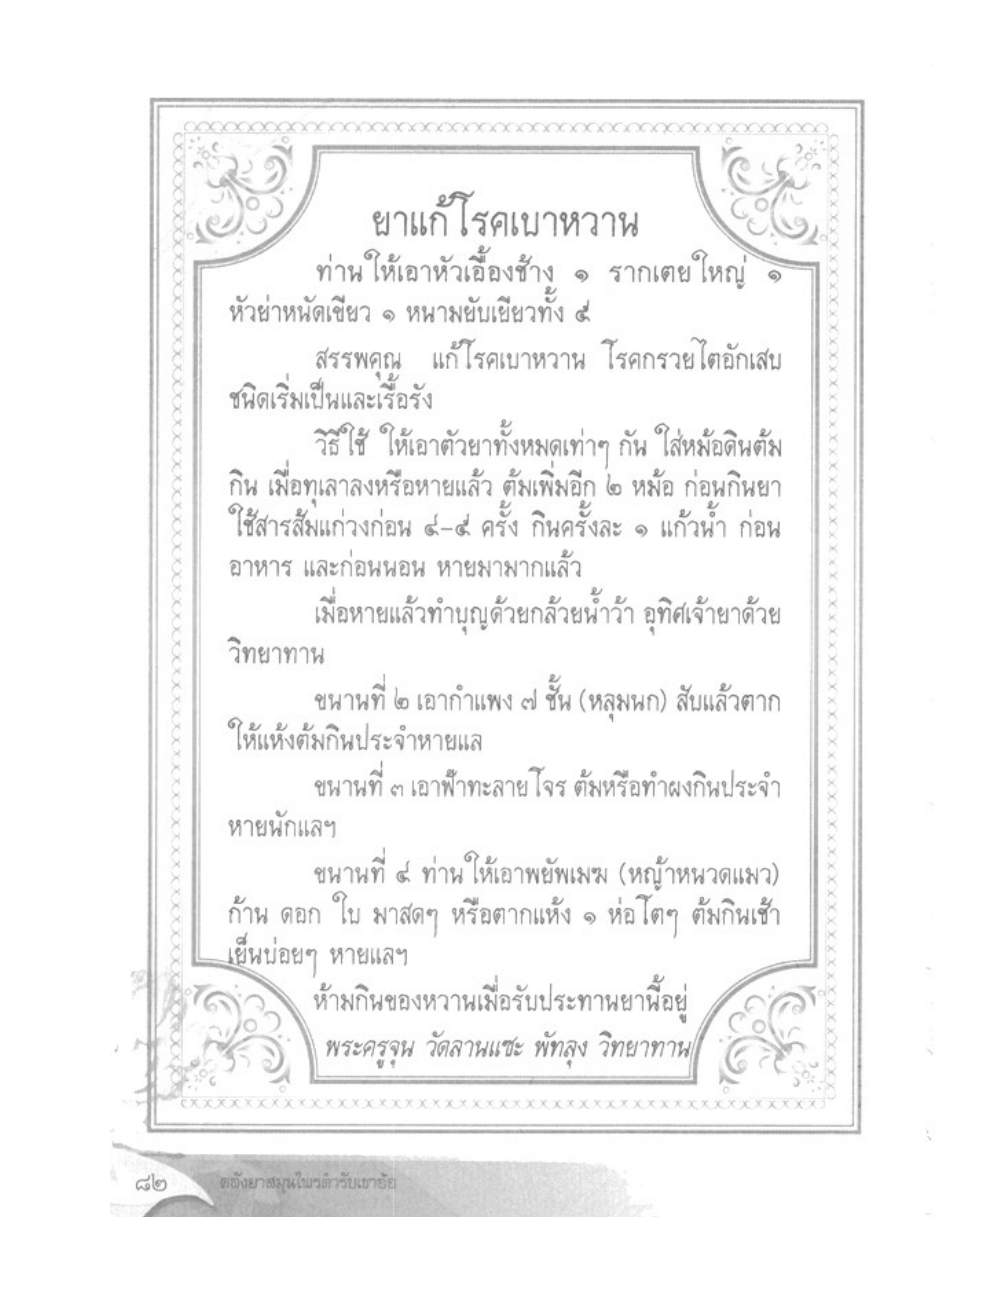 ยาแก้โรคเบาหวาน
ท่านให้เอาหัวเอื้องช้าง ๑ รากเตยใหญ่ ๑
หัวย่าหนัดเขียว ๑ หนามยับเยียวทั้ง ๕
สรรพคุณ แก้โรคเบาหวาน โรคกรวยไตอักเสบ
ชนิดเริ่มเป็นและเรื้อรัง
วิธีใช้ ให้เอาตัวยาทั้งหมดเท่าๆ กัน ใส่หม้อดินต้ม
กิน เมื่อทุเลาลงหรือหายแล้ว ต้มเพิ่มอีก ๒ หม้อ ก่อนกินยา
ใช้สารส้มแก่วงก่อน ๔-๕ ครั้ง กินครั้งละ ๑ แก้วน้ำ ก่อน
อาหาร และก่อนนอน หายมามากแล้ว
เมื่อหายแล้วทำบุญด้วยกล้วยน้ำว้า อุทิศเจ้ายาด้วย
วิทยาทาน
ขนานที่ ๒ เอากำแพง ๗ ชั้น (หลุมนก) สับแล้วตาก
ให้แห้งต้มกินประจำหายแล
ขนานที่ ๓ เอาฟ้าทะลายโจร ต้มหรือทำผงกินประจำ
หายนักแลฯ
ขนานที่ ๔ ท่านให้เอาพยัพเมฆ (หญ้าหนวดแมว)
ก้าน ดอก ใบ มาสดๆ หรือตากแห้ง ๑ ห่อโตๆ ต้มกินเช้า
เย็นบ่อยๆ หายแลฯ
ห้ามกินของหวานเมื่อรับประทานยานี้อยู่
พระครูจุน วัดลานแซะ พัทลุง วิทยาทาน
๘๒ คลังยาสมุนไพรตำรับเขาอ้อ